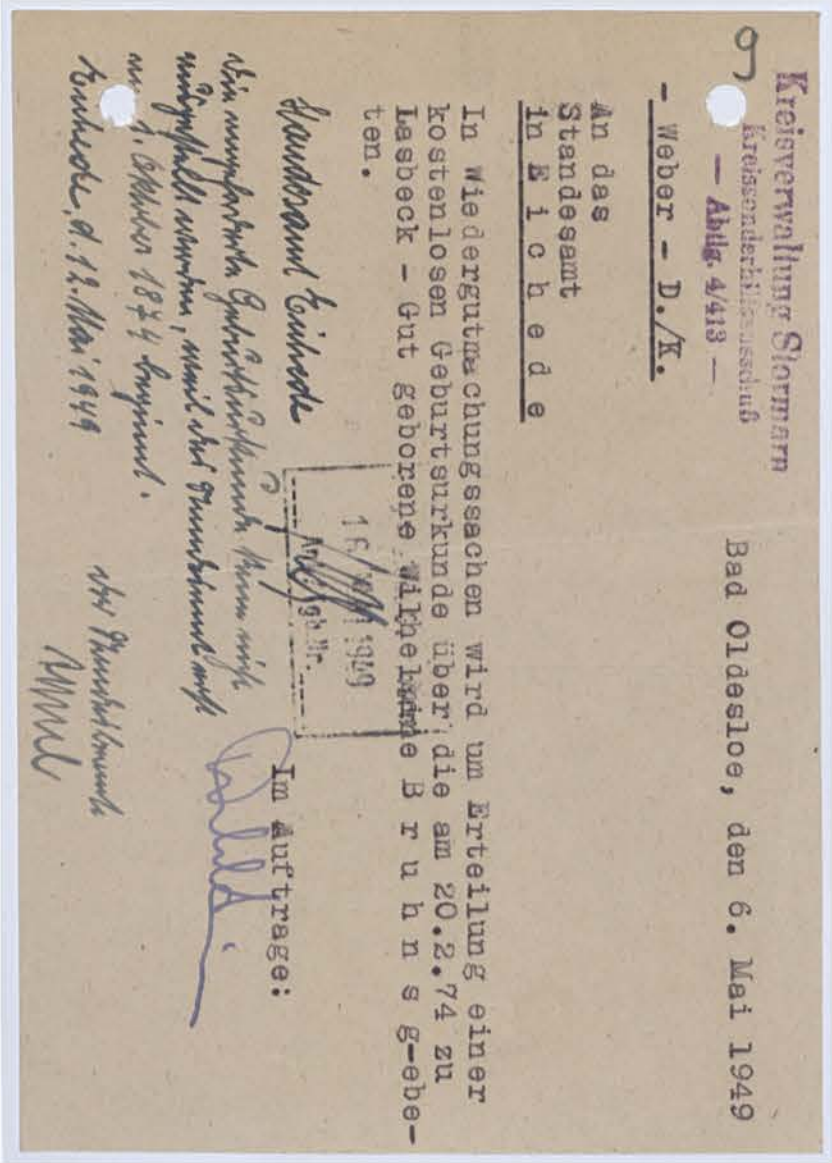 Kreisverwaltung Stormarn
Kreissonderhilfsausschuß
— Abtlg. 4/413 —
9
Bad Oldesloe, den 6. Mai 1949
- Weber - D./K.
An das
Standesamt
in E i c h e d e
In Wiedergutmachungssachen wird um Erteilung einer
kostenlosen Geburtsurkunde über die am 20.2.74 zu
Lasbeck - Gut geborene Wilhelmine B r u h n s g-ebe-
ten.
1949
Im Auftrage:
Standesamt Eichede
Die angeforderte Geburtsurkunde kann nicht
ausgestellt werden, weil das Standesamt erst
am 1. Oktober 1874 beginnt.
Eichede, d. 12. Mai 1949
Der Standesbeamte